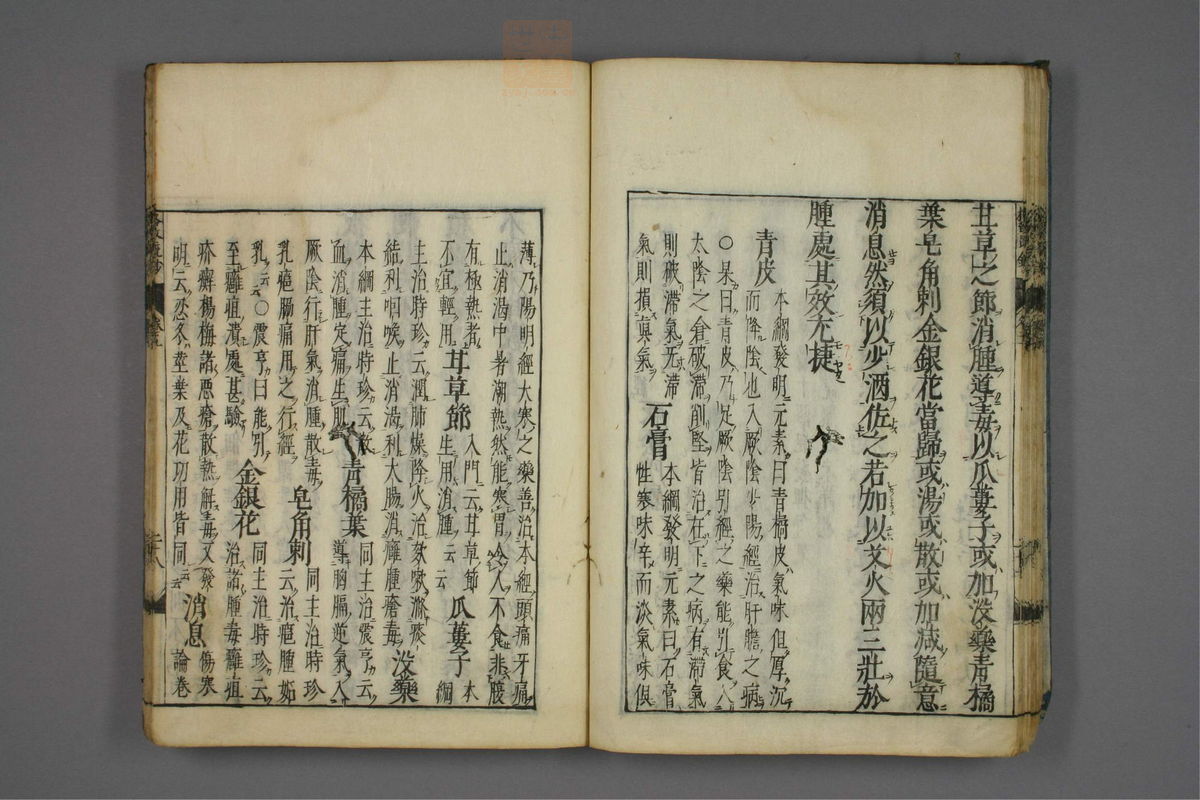 甘草之節消腫導毒以瓜蔞子或加沒藥青橘
葉皂角刺金銀花當歸或湯或散或加減隨意
消息然須以少酒佐之若加以艾火兩三壯於
腫處其效尤捷
青皮
本綱發明元素曰青橘皮氣味俱厚沉
而降陰也入厥陰少陽經治肝膽之病
○杲曰青皮乃足厥陰引經之藥能引食入
太陰之倉破滯削堅皆治在下之病有滯氣
則破滯氣无滯
氣則損眞氣
石膏
本綱發明元素曰石膏
性寒味辛而淡氣味俱
薄乃陽明經大寒之藥善治本經頭痛牙痛
止消渴中暑潮熱然能寒胃令人不食非腹
有極熱者
不宜輕用
甘草節
入門云甘草節
生用消腫云云
瓜蔞子
本
綱
主治時珍云潤肺燥降火治欬嗽滌痰
結利咽喉止消渴利大腸消癰腫瘡毒
沒藥
本綱主治時珍云散
血消腫定痛生肌
青橘葉
同主治震亨云
導胸膈逆氣入
厥陰行肝氣消腫散毒
乳癰脇痛用之行經
皂角刺
同主治時珍
云治癰腫妬
乳云云○震亨曰能引
至癰疽潰處甚驗
金銀花
同主治時珍云
治諸腫毒癰疽
疥癬楊梅諸惡瘡散熱解毒又發
明云忍冬莖葉及花功用皆同云云
消息
傷寒
論卷